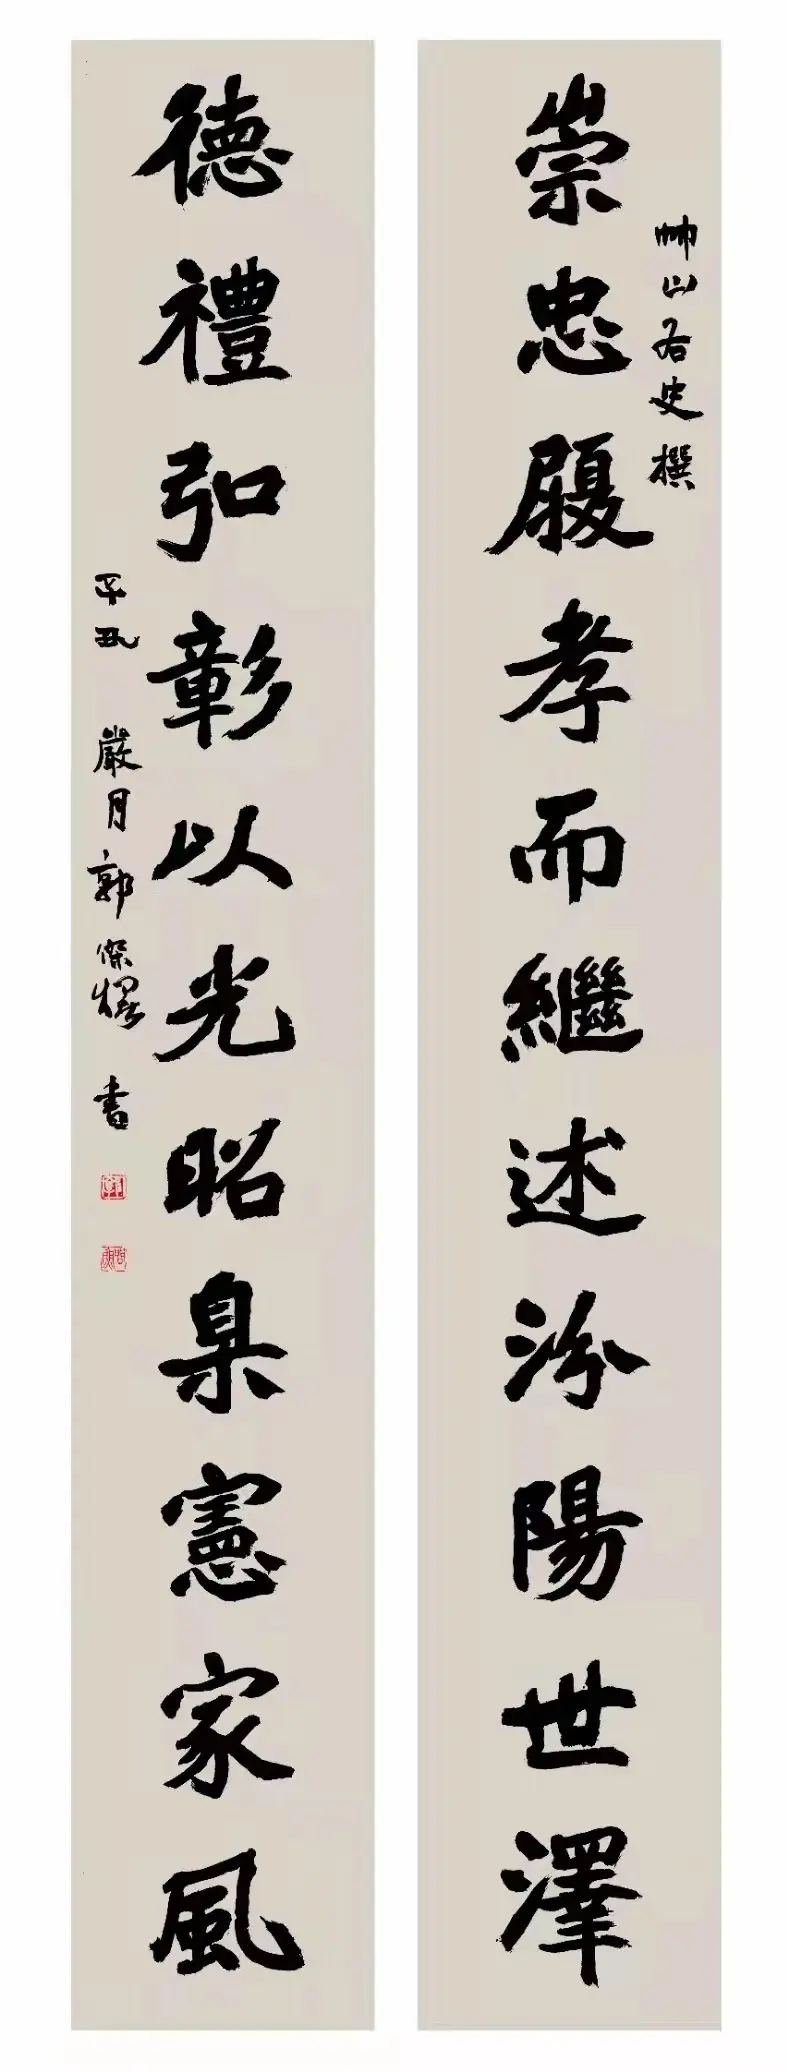 崇忠履孝而繼述汾陽世澤
山右史撰
德禮弘彰以光昭臬憲家風
辛丑 嚴月郭傑燿 書